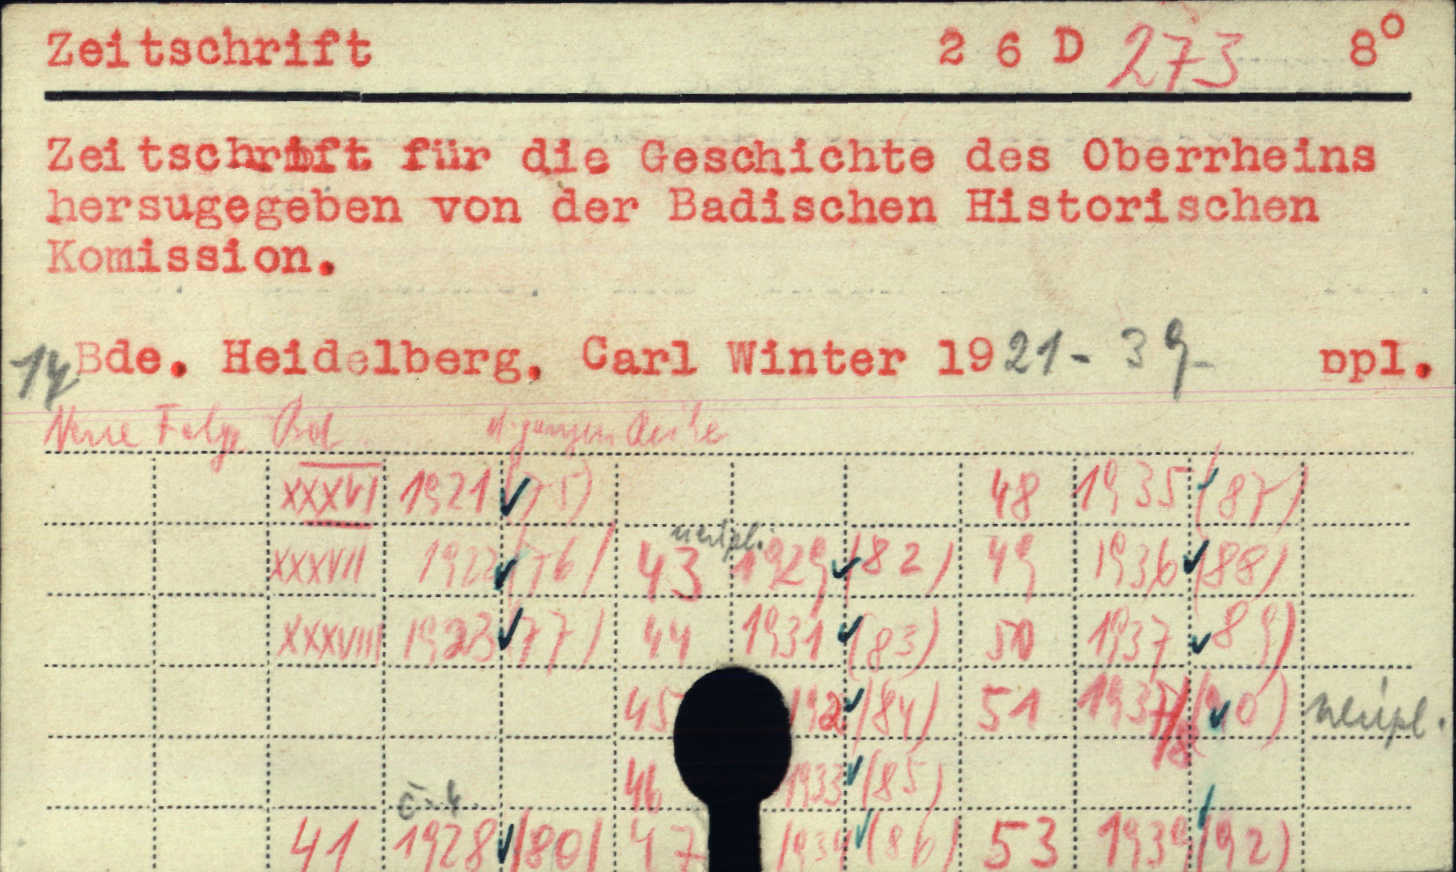 Zeitschrift 26 D 273 8°
Zeitschrift für die Geschichte des Oberrheins
hersugegeben von der Badischen Historischen
Komission.
14 Bde. Heidelberg. Carl Winter 1921-39 ppl.
Neue Folge Bd. d. ganzen Reihe
XXXVI 1921 (75) 48 1935 (87)
neúpl.
XXXVII 1922 (76) 43 1929 (82) 49 1936 (88)
XXXVIII 1923 (77) 44 1931 (83) 50 1937 (89)
45 192 (84) 51 1937/8 (90) neúpl.
46 1933 (85)
č. 4.
41 1928 (80) 47 1934 (86) 53 1939 (92)